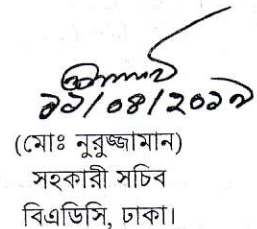 ১১/০৪/২০১৭
(মোঃ নুরুজ্জামান)
সহকারী সচিব
বিএডিসি, ঢাকা।